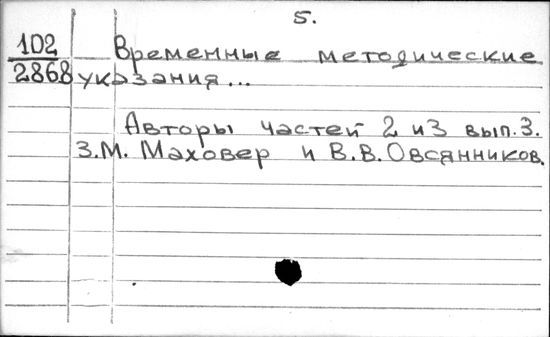 5.
102 Временные методические
2868 указания...
Авторы частей 2 и 3 вып. 3.
З.М. Маховер и В.В. Овсянников.